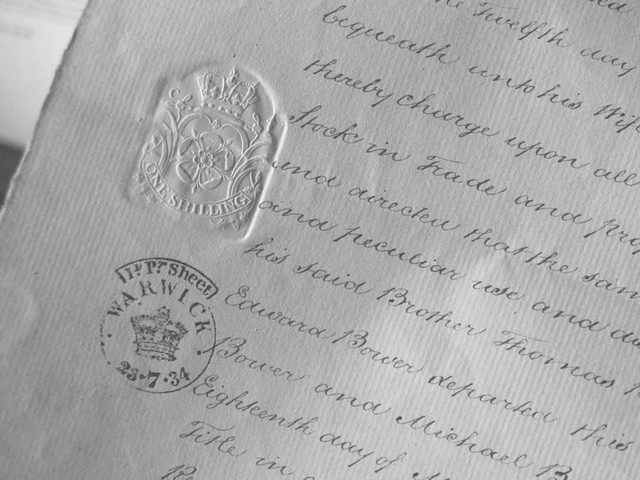 the Twelfth day
bequeath unto his Wife
thereby charge upon all
Stock in Trade and
and directed that the
and peculiar use and
his said Brother Thomas
Edward Bower departed this
Bower and Michael B
Eighteenth day of
Title in
ONE SHILLING
Pr Sheet
WARWICK
23·7·34